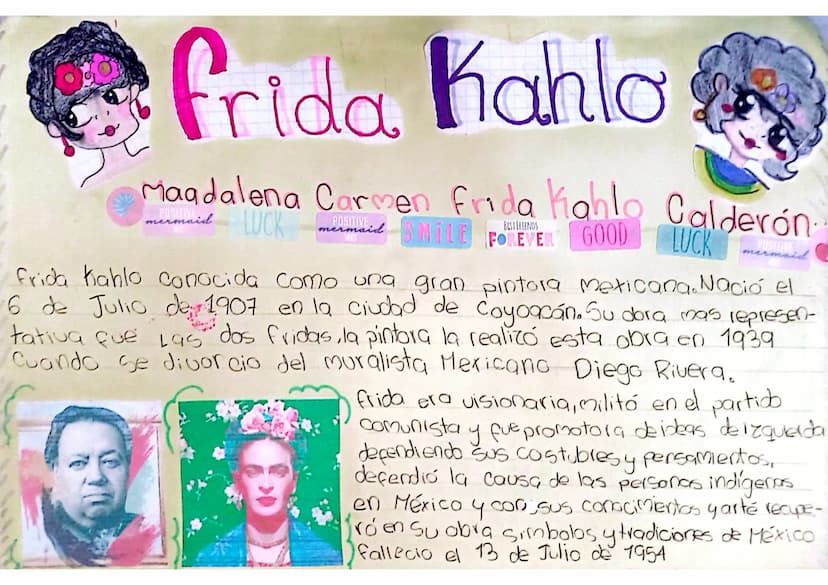 Frida Kahlo
Magdalena Carmen Frida Kahlo Calderón..
POSITIVE mermaid LUCK POSITIVE mermaid SMILE BESTFRIENDS FOREVER GOOD LUCK POSITIVE mermaid
Frida Kahlo conocida como una gran pintora mexicana. Nació el
6 de Julio de 1907 en la ciudad de Coyoacán. Su obra mas represen-
tativa fue Las dos fridas, la pintora la realizó esta obra en 1939
Cuando se divorcio del muralista Mexicano Diego Rivera.
Frida era visionaria, militó en el partido
comunista y fue promotora de ideas de izquierda
defendiendo sus costubres y pensamientos,
defendió la causa de las personas indígenas
en México y con sus conocimientos y arte recupe-
ró en su obra simbolos y tradiciones de México
fallecio el 13 de Julio de 1954